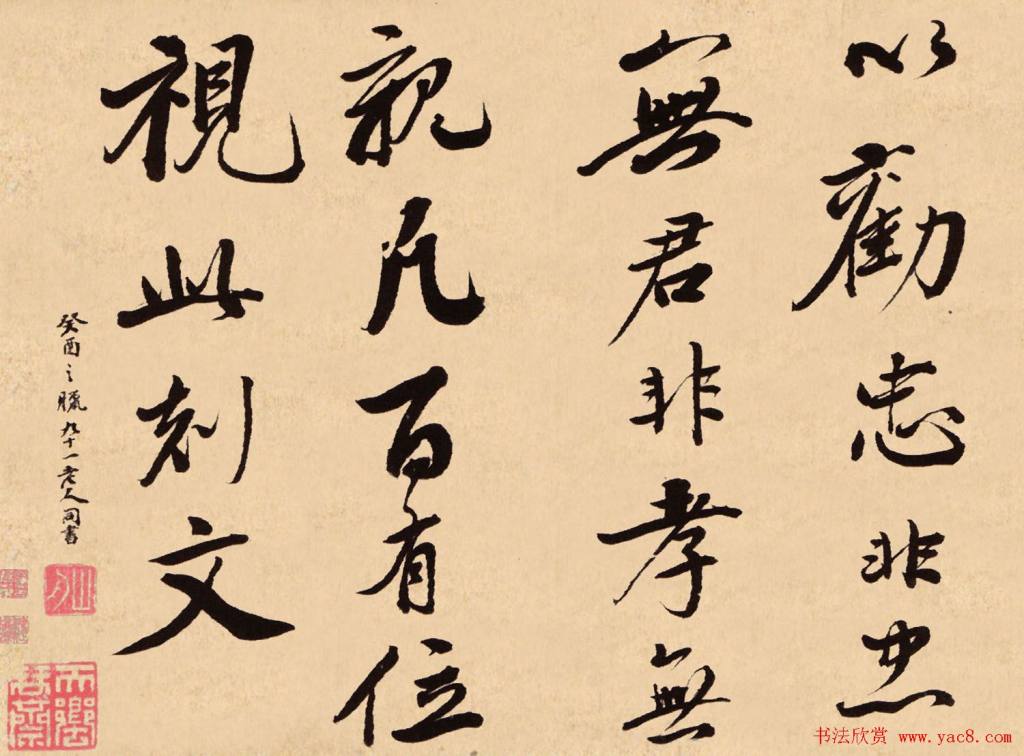 以勸忠非忠
無君非孝無
親凡百有位
視此刻文
癸酉之臘九十一老人同書
山舟
书法欣赏 www.yac8.com